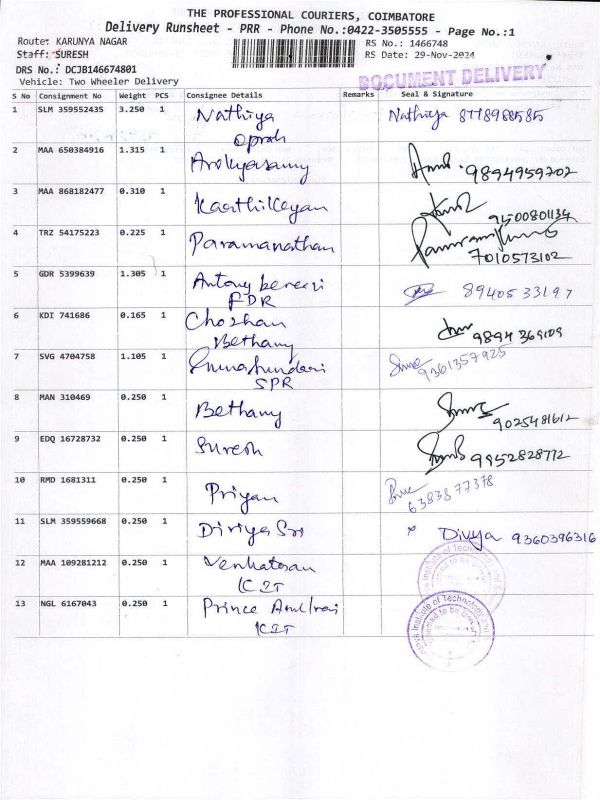 THE PROFESSIONAL COURIERS, COIMBATORE
Delivery Runsheet - PRR - Phone No.:0422-3505555 - Page No.:1
Route: KARUNYA NAGAR
RS No.: 1466748
Staff: SURESH
RS Date: 29-Nov-2024
DRS No.: DCJB146674801
Vehicle: Two Wheeler Delivery
DOCUMENT DELIVERY
S No Consignment No Weight PCS Consignee Details Remarks Seal & Signature
1 SLM 359552435 3.250 1 Nathiya Nathiya
2 MAA 650384916 1.315 1 Arokyasamy 9894959702
3 MAA 868182477 0.310 1 Kaarthikeyan 9500801134
4 TRZ 54175223 0.225 1 Paramanathan
7010573102
5 GDR 5399639 1.305 1 Antony 89405 33197
FDR
6 KDI 741686 0.165 1 Chozhan 9894 369109
Bethany
7 SVG 4704758 1.105 1 9361357925
SPR
8 MAN 310469 0.250 1 Bethany 9025481612
9 EDQ 16728732 0.250 1 Suresh 9952828772
10 RMD 1681311 0.250 1 Priyan 63838 77378
11 SLM 359559668 0.250 1 Diviya Sri Divya 9360396316
12 MAA 109281212 0.250 1
KIT
13 NGL 6167043 0.250 1 Prince
KIT
Institute of Technology